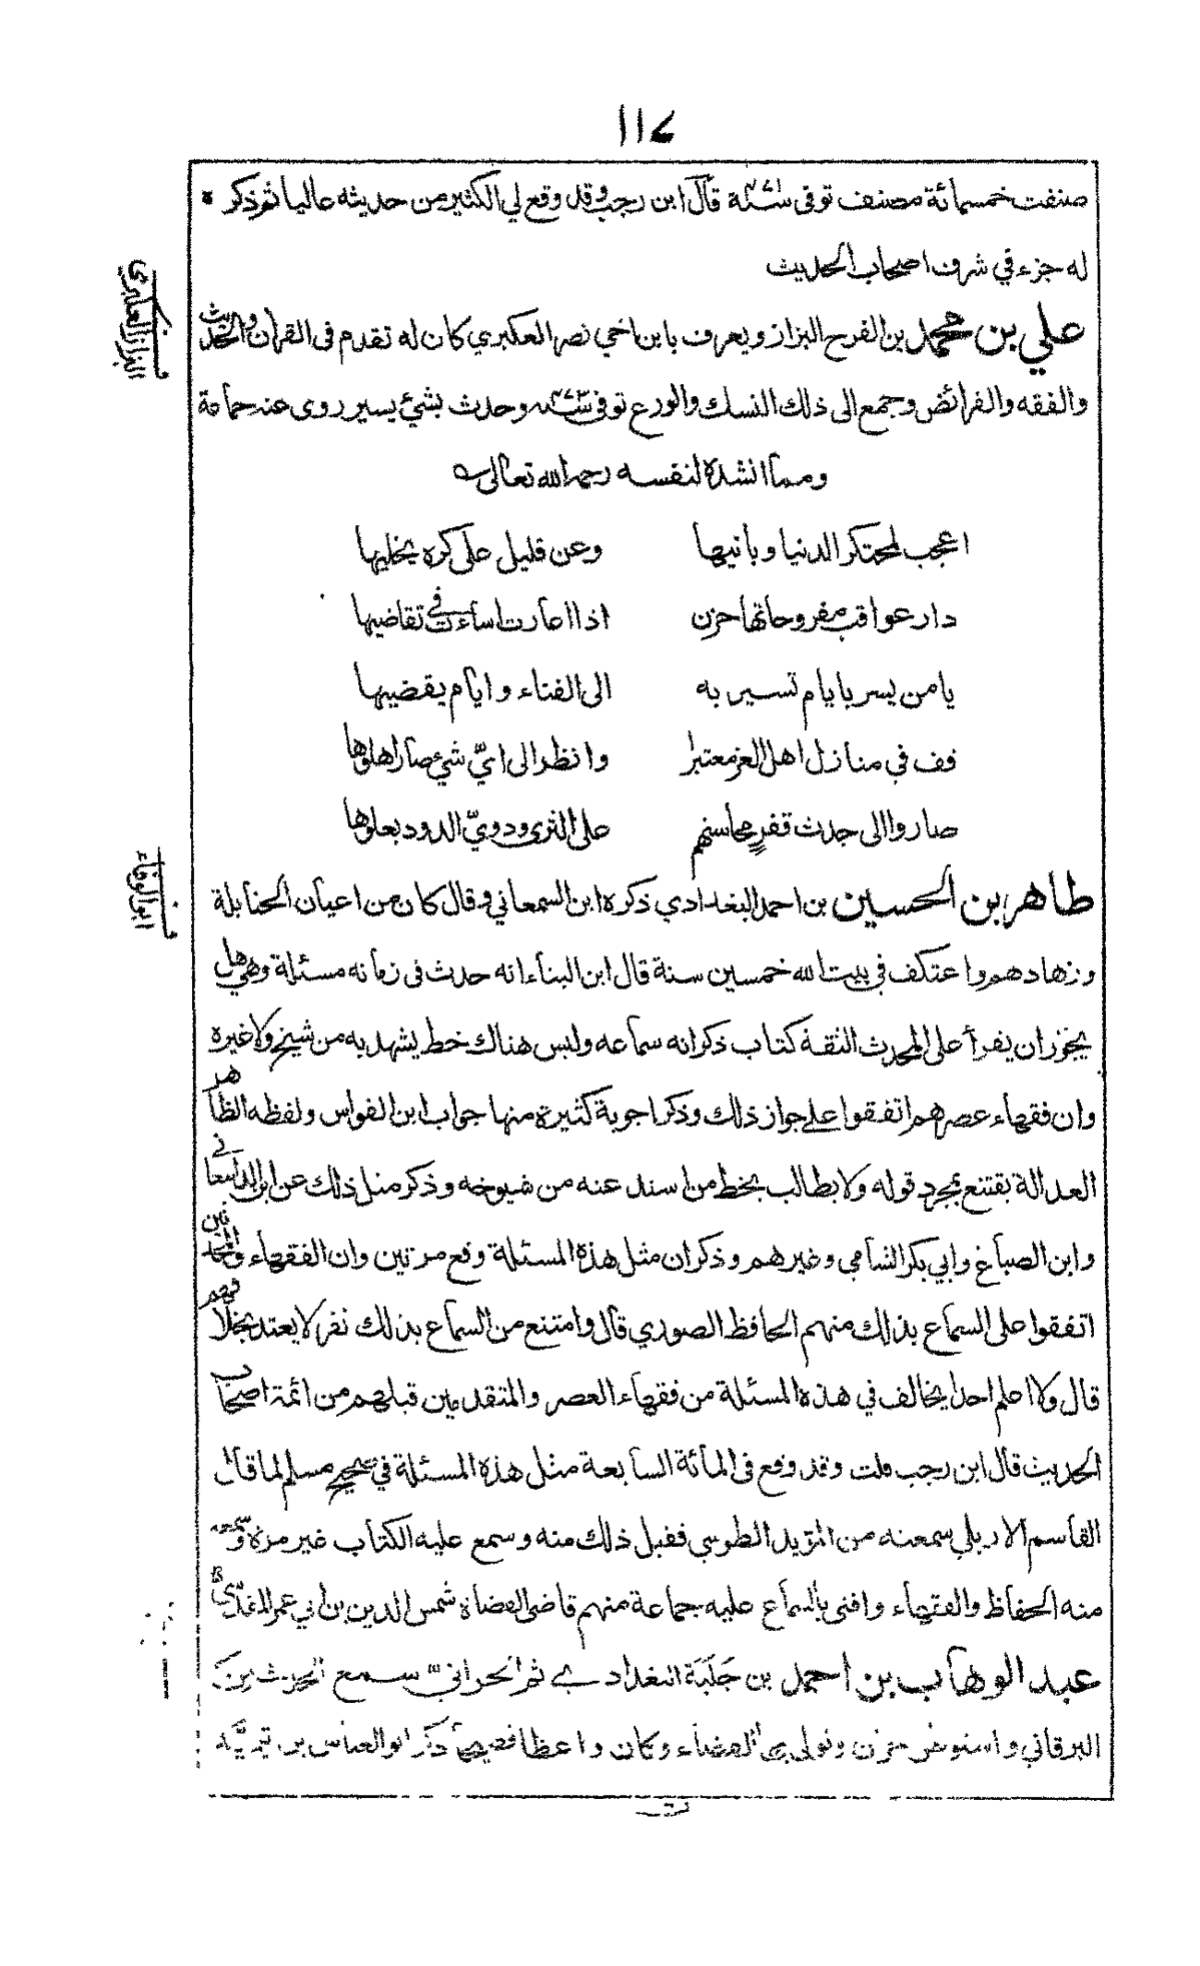 صنفت خمسمائة مصنف توفى سنة قال ابن رجب وقد وقع لي الكثير من حديثه عاليا ثم ذكر
له جزء في شرف اصحاب الحديث
البزاز العكبري
علي بن محمد بن الفرح البزاز ويعرف بابن اخي نصر العكبري كان له تقدم فى القران والحديث
والفقه والفرائض وجمع الى ذلك النسك والورع توفى وحدث بشئ يسير روى عنه جماعة
ومما انشده لنفسه رحمه الله تعالى
اعجب لمحتكر الدنيا وبانيها وعن قليل على كره يخليها
دار عواقب مفروحاتها حزن اذا اعارت اساءت في تقاضيها
يا من يسر بايام تسير به الى الفناء وايام يقضيها
قف في منازل اهل العز معتبرا وانظر الى ايّ شئ صار اهلوها
صاروا الى جدث قفرٍ محاسنهم على الثرى ودويّ الدود يعلوها
ابو الوفاء
طاهر بن الحسين بن احمد البغدادي ذكره ابن السمعاني وقال كان من اعيان الحنابلة
وزهادهم واعتكف في بيت الله خمسين سنة قال ابن البناء انه حدث فى زمانه مسئلة وهي هل
يجوز ان يقرأ على المحدث الثقة كتاب ذكر انه سماعه وليس هناك خط يشهد به من شيخ ولا غيره
وان فقهاء عصرهم اتفقوا على جواز ذلك وذكر اجوبة كثيرة منها جواب ابن الفواس ولفظه الظاهر
العدالة يقتنع بمجرد قوله ولا يطالب بخط من اسند عنه من شيوخه وذكر مثل ذلك عن ابن الدامعاني
وابن الصباغ وابي بكر الشامي وغيرهم وذكر ان مثل هذه المسئلة وقع مرتين وان الفقهاء والمحدثين
اتفقوا على السماع بذلك منهم الحافظ الصوري قال وامتنع من السماع بذلك نفر لا يعتد بخلافهم
قال ولا اعلم احدا يخالف في هذه المسئلة من فقهاء العصر والمتقدمين قبلهم من ائمة اصحاب
الحديث قال ابن رجب قلت وقد وقع فى المائة السابعة مثل هذه المسئلة في صحيح مسلم لما قال
القاسم الاربلي سمعته من المؤيد الطوسي فقبل ذلك منه وسمع عليه الكتاب غير مرة وسمعه
منه الحفاظ والفقهاء وافتى بالسماع عليه جماعة منهم قاضى القضاة شمس الدين بن ابي عمر المقدسي
عبد الوهاب بن احمد بن جَلَبَة البغدادي ثم الحرانيّ سمع الحديث من
البرقاني و وتولى بها القضاء وكان واعظا فصيحا ذكر ابو العباس بن تيميّة